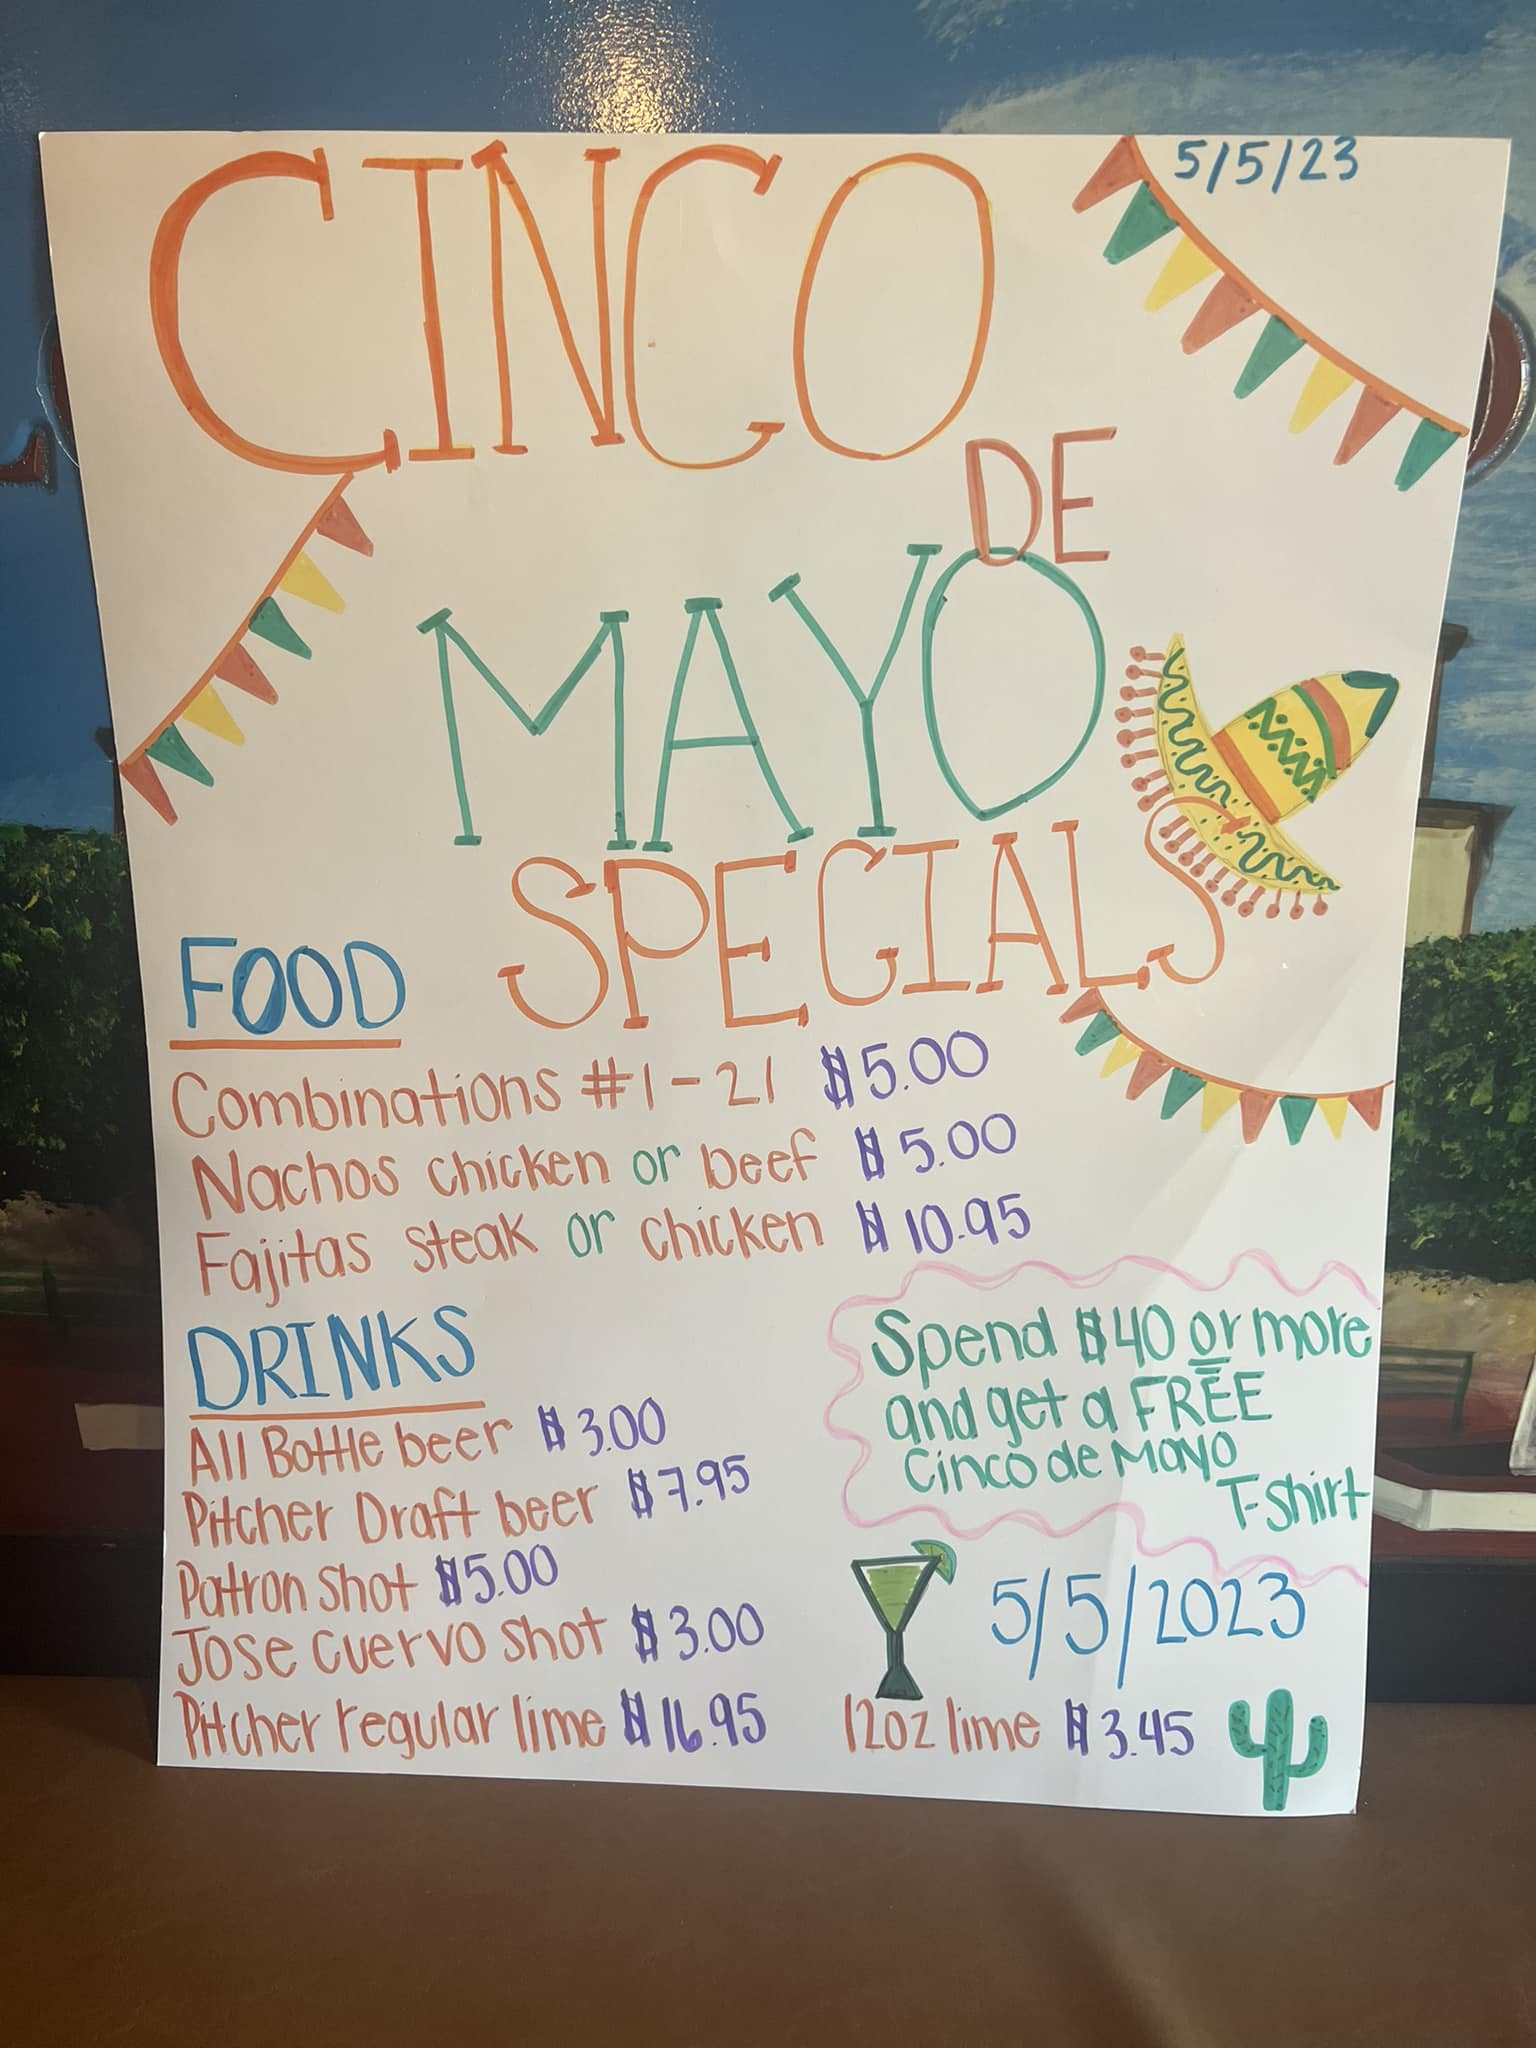 5/5/23
CINCO
DE
MAYO
SPECIALS
FOOD
Combinations #1-21 $5.00
Nachos chicken or beef $5.00
Fajitas steak or chicken $10.95
DRINKS
All Bottle beer $3.00
Pitcher Draft beer $7.95
Patron shot $5.00
Jose Cuervo shot $3.00
Pitcher regular lime $16.95
Spend $40 or more
and get a FREE
Cinco de Mayo
T-Shirt
5/5/2023
12oz lime $3.45